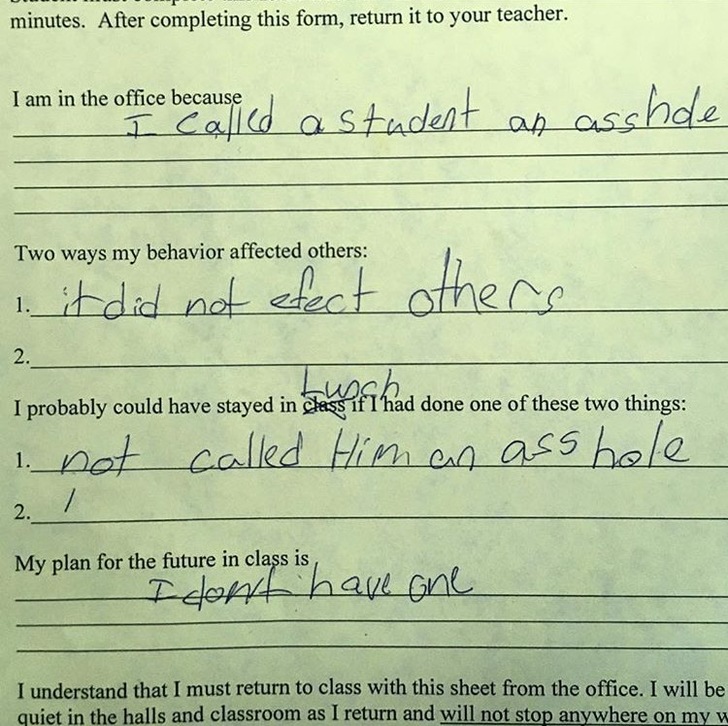 minutes. After completing this form, return it to your teacher.
I am in the office because
I called a student an asshole
Two ways my behavior affected others:
1. it did not efect others
2.
Lunch
I probably could have stayed in class if I had done one of these two things:
1. not called Him an ass hole
2. /
My plan for the future in class is
I dont have one
I understand that I must return to class with this sheet from the office. I will be
quiet in the halls and classroom as I return and will not stop anywhere on my